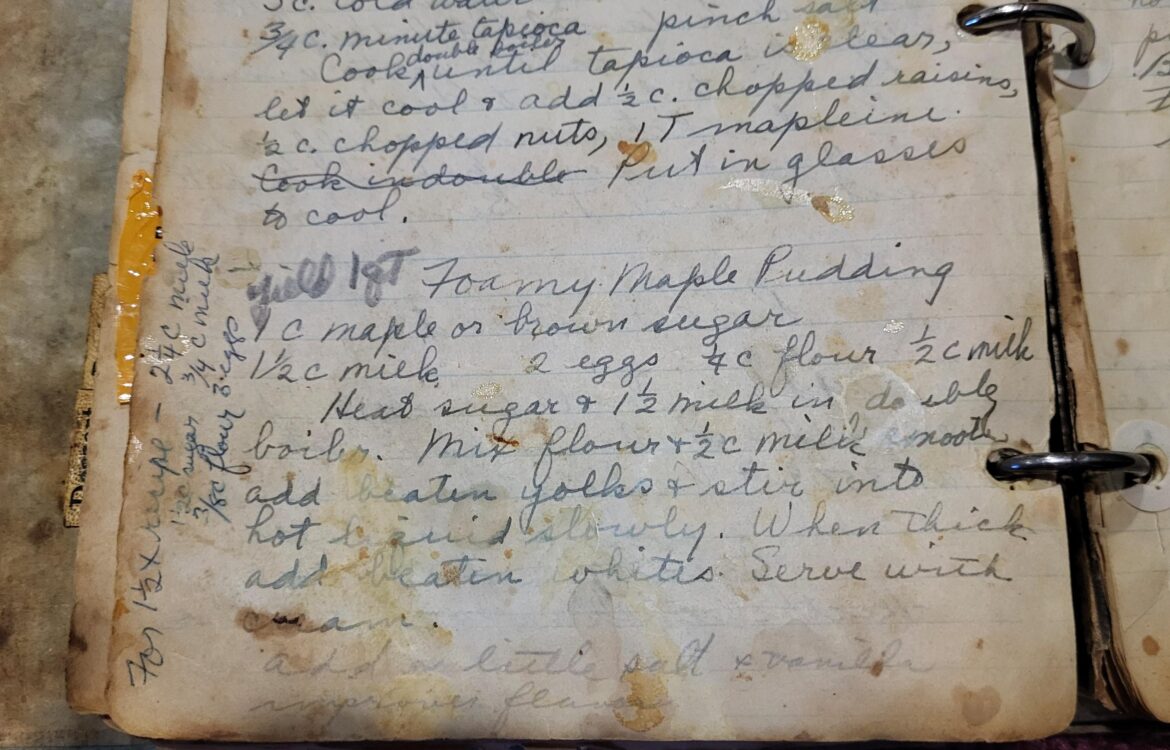 3 c. cold water
3/4 c. minute tapioca pinch salt
double boiler
Cook ^ until tapioca is clear,
let it cool & add 1/2 c. chopped raisins,
1/2 c. chopped nuts, 1 T mapleine.
Cook in double Put in glasses
to cool.
yield 1 qt Foamy Maple Pudding
1 c maple or brown sugar
1 1/2 c milk 2 eggs 1/4 c flour 1/2 c milk
Heat sugar & 1 1/2 milk in double
boiler. Mix flour & 1/2 c milk smooth
add beaten yolks & stir into
hot liquid slowly. When thick
add beaten whites. Serve with
cream.
add a little salt & vanilla
improves flavor
For 1 1/2 x recipe - 2 1/4 c milk
1 1/2 c sugar 3/4 c milk
3/8 c flour 3 eggs